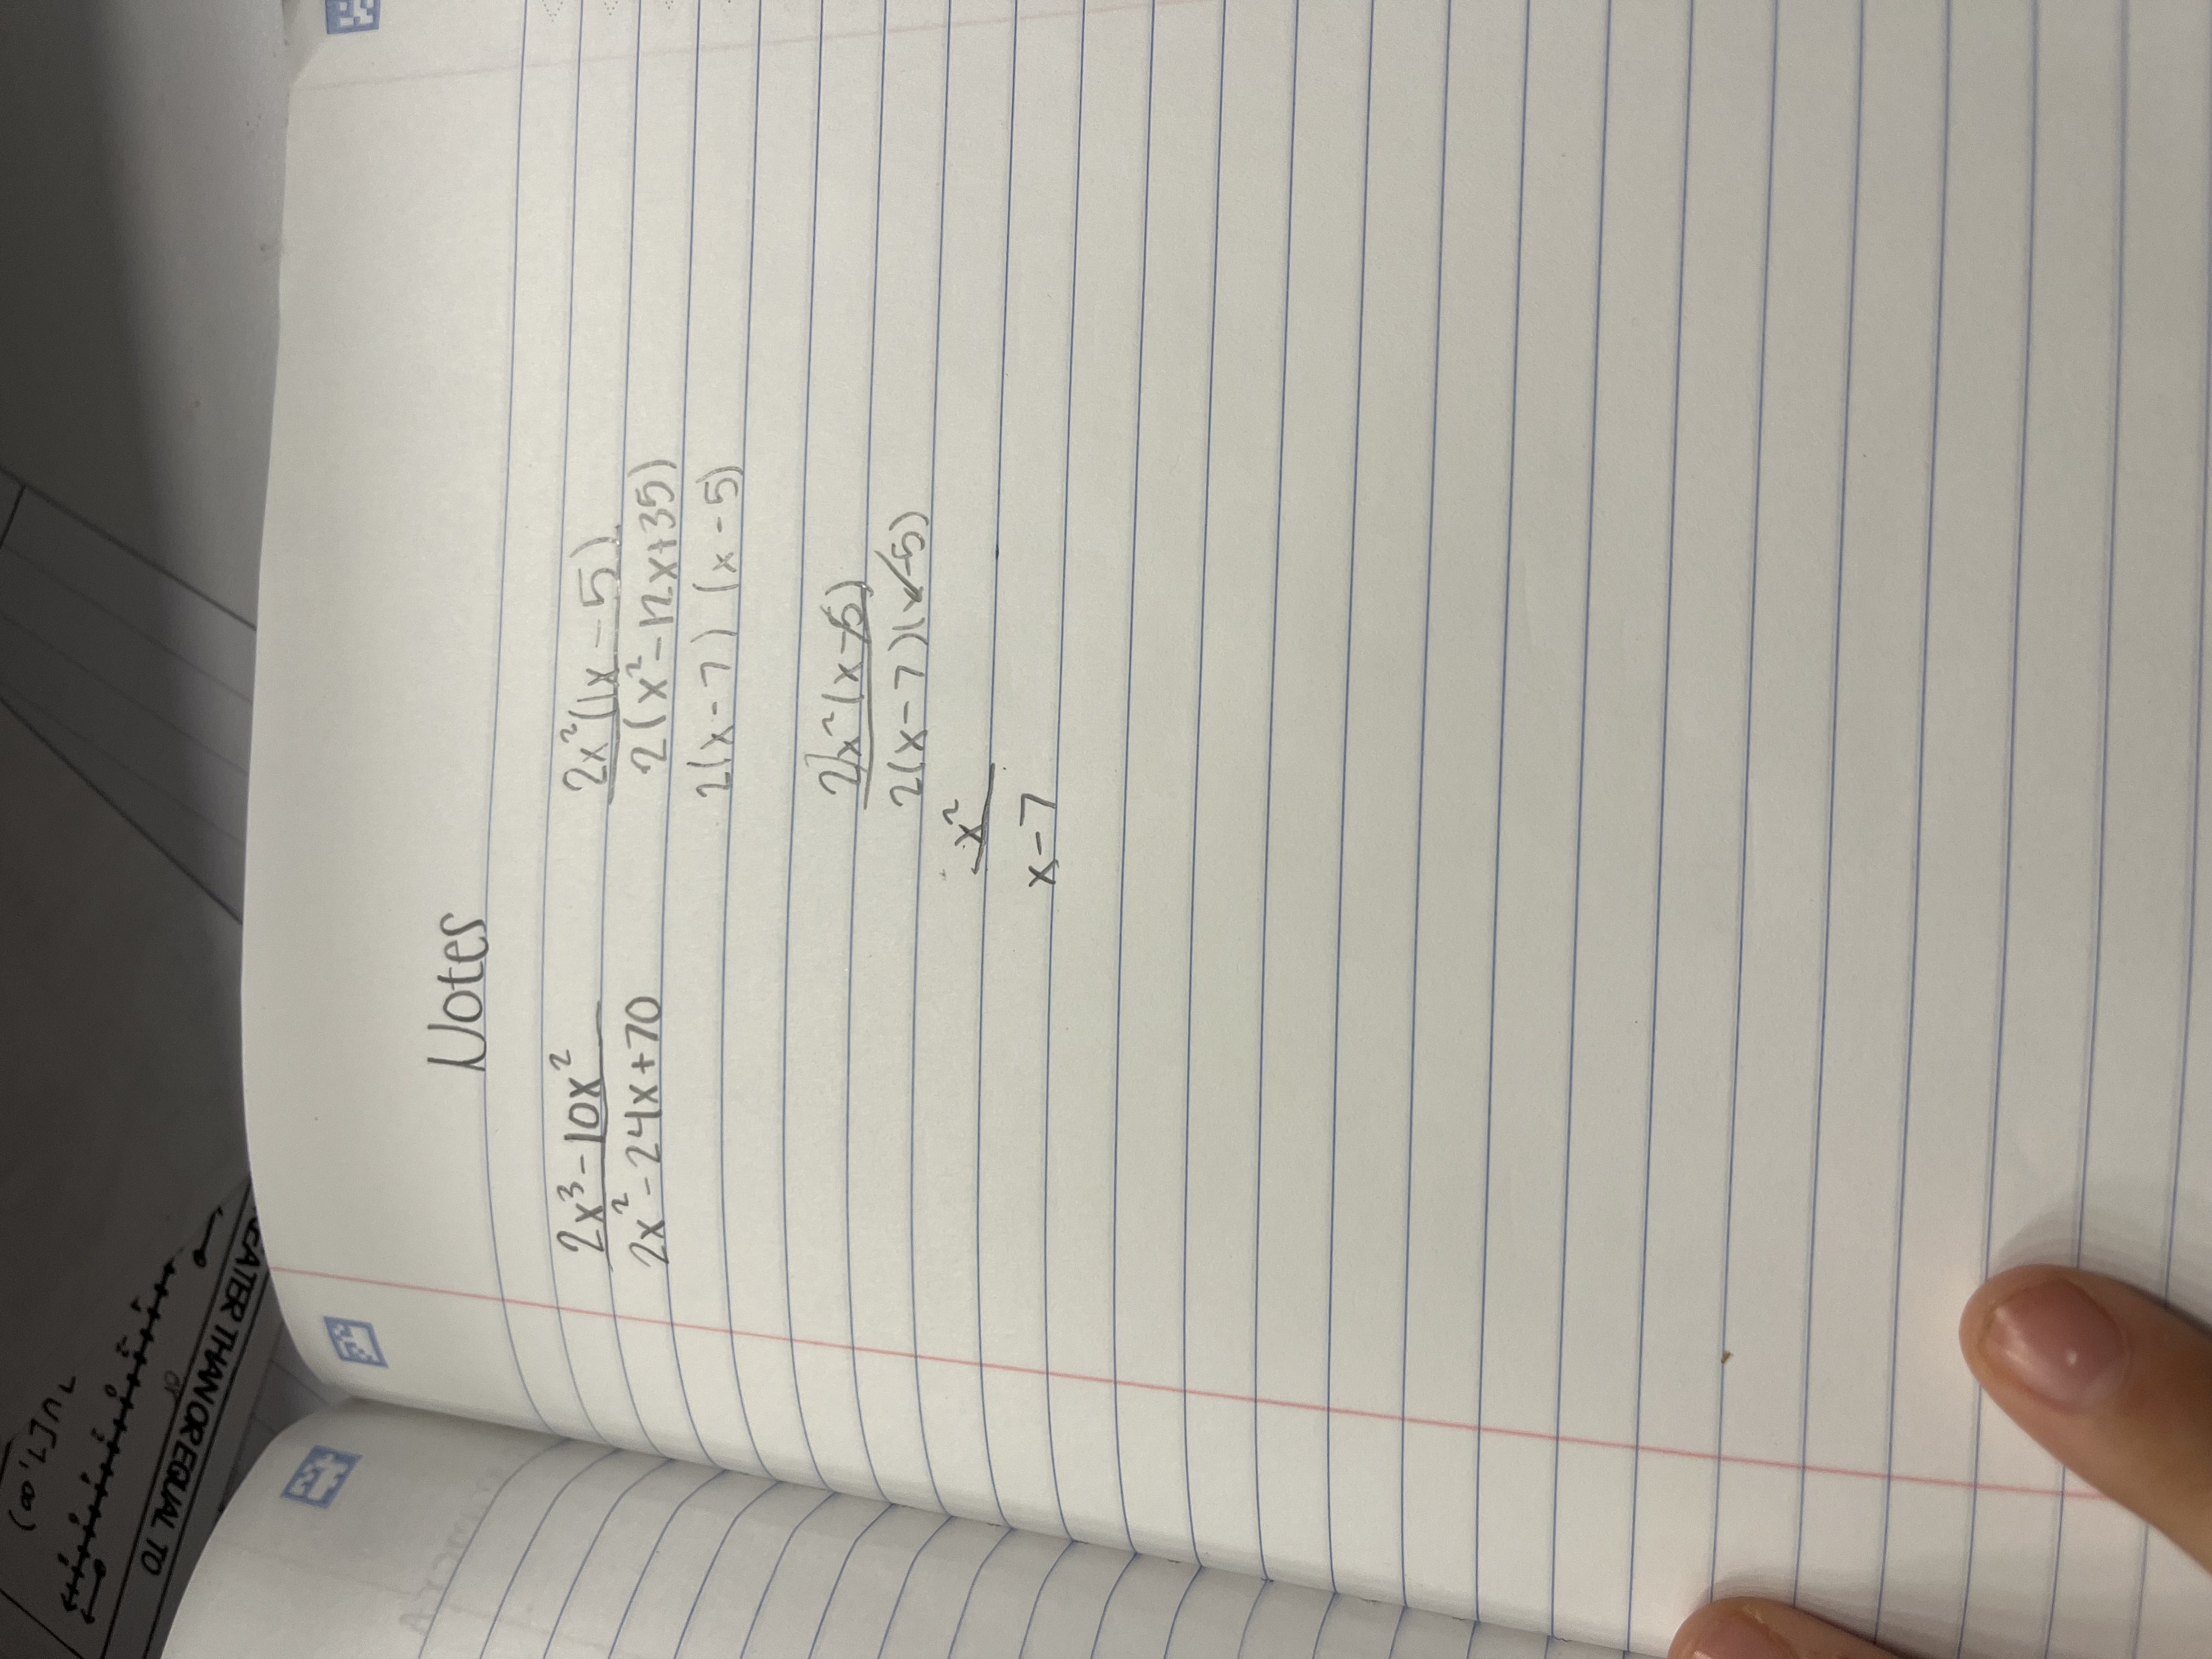 Notes
2x³-10x²
2x²-24x+70
2x²(x-5)
2(x²-12x+35)
2(x-7)(x-5)
2x²(x-5)
2(x-7)(x-5)
x²
x-7
EATER THAN OR EQUAL TO
or
U[1,∞)